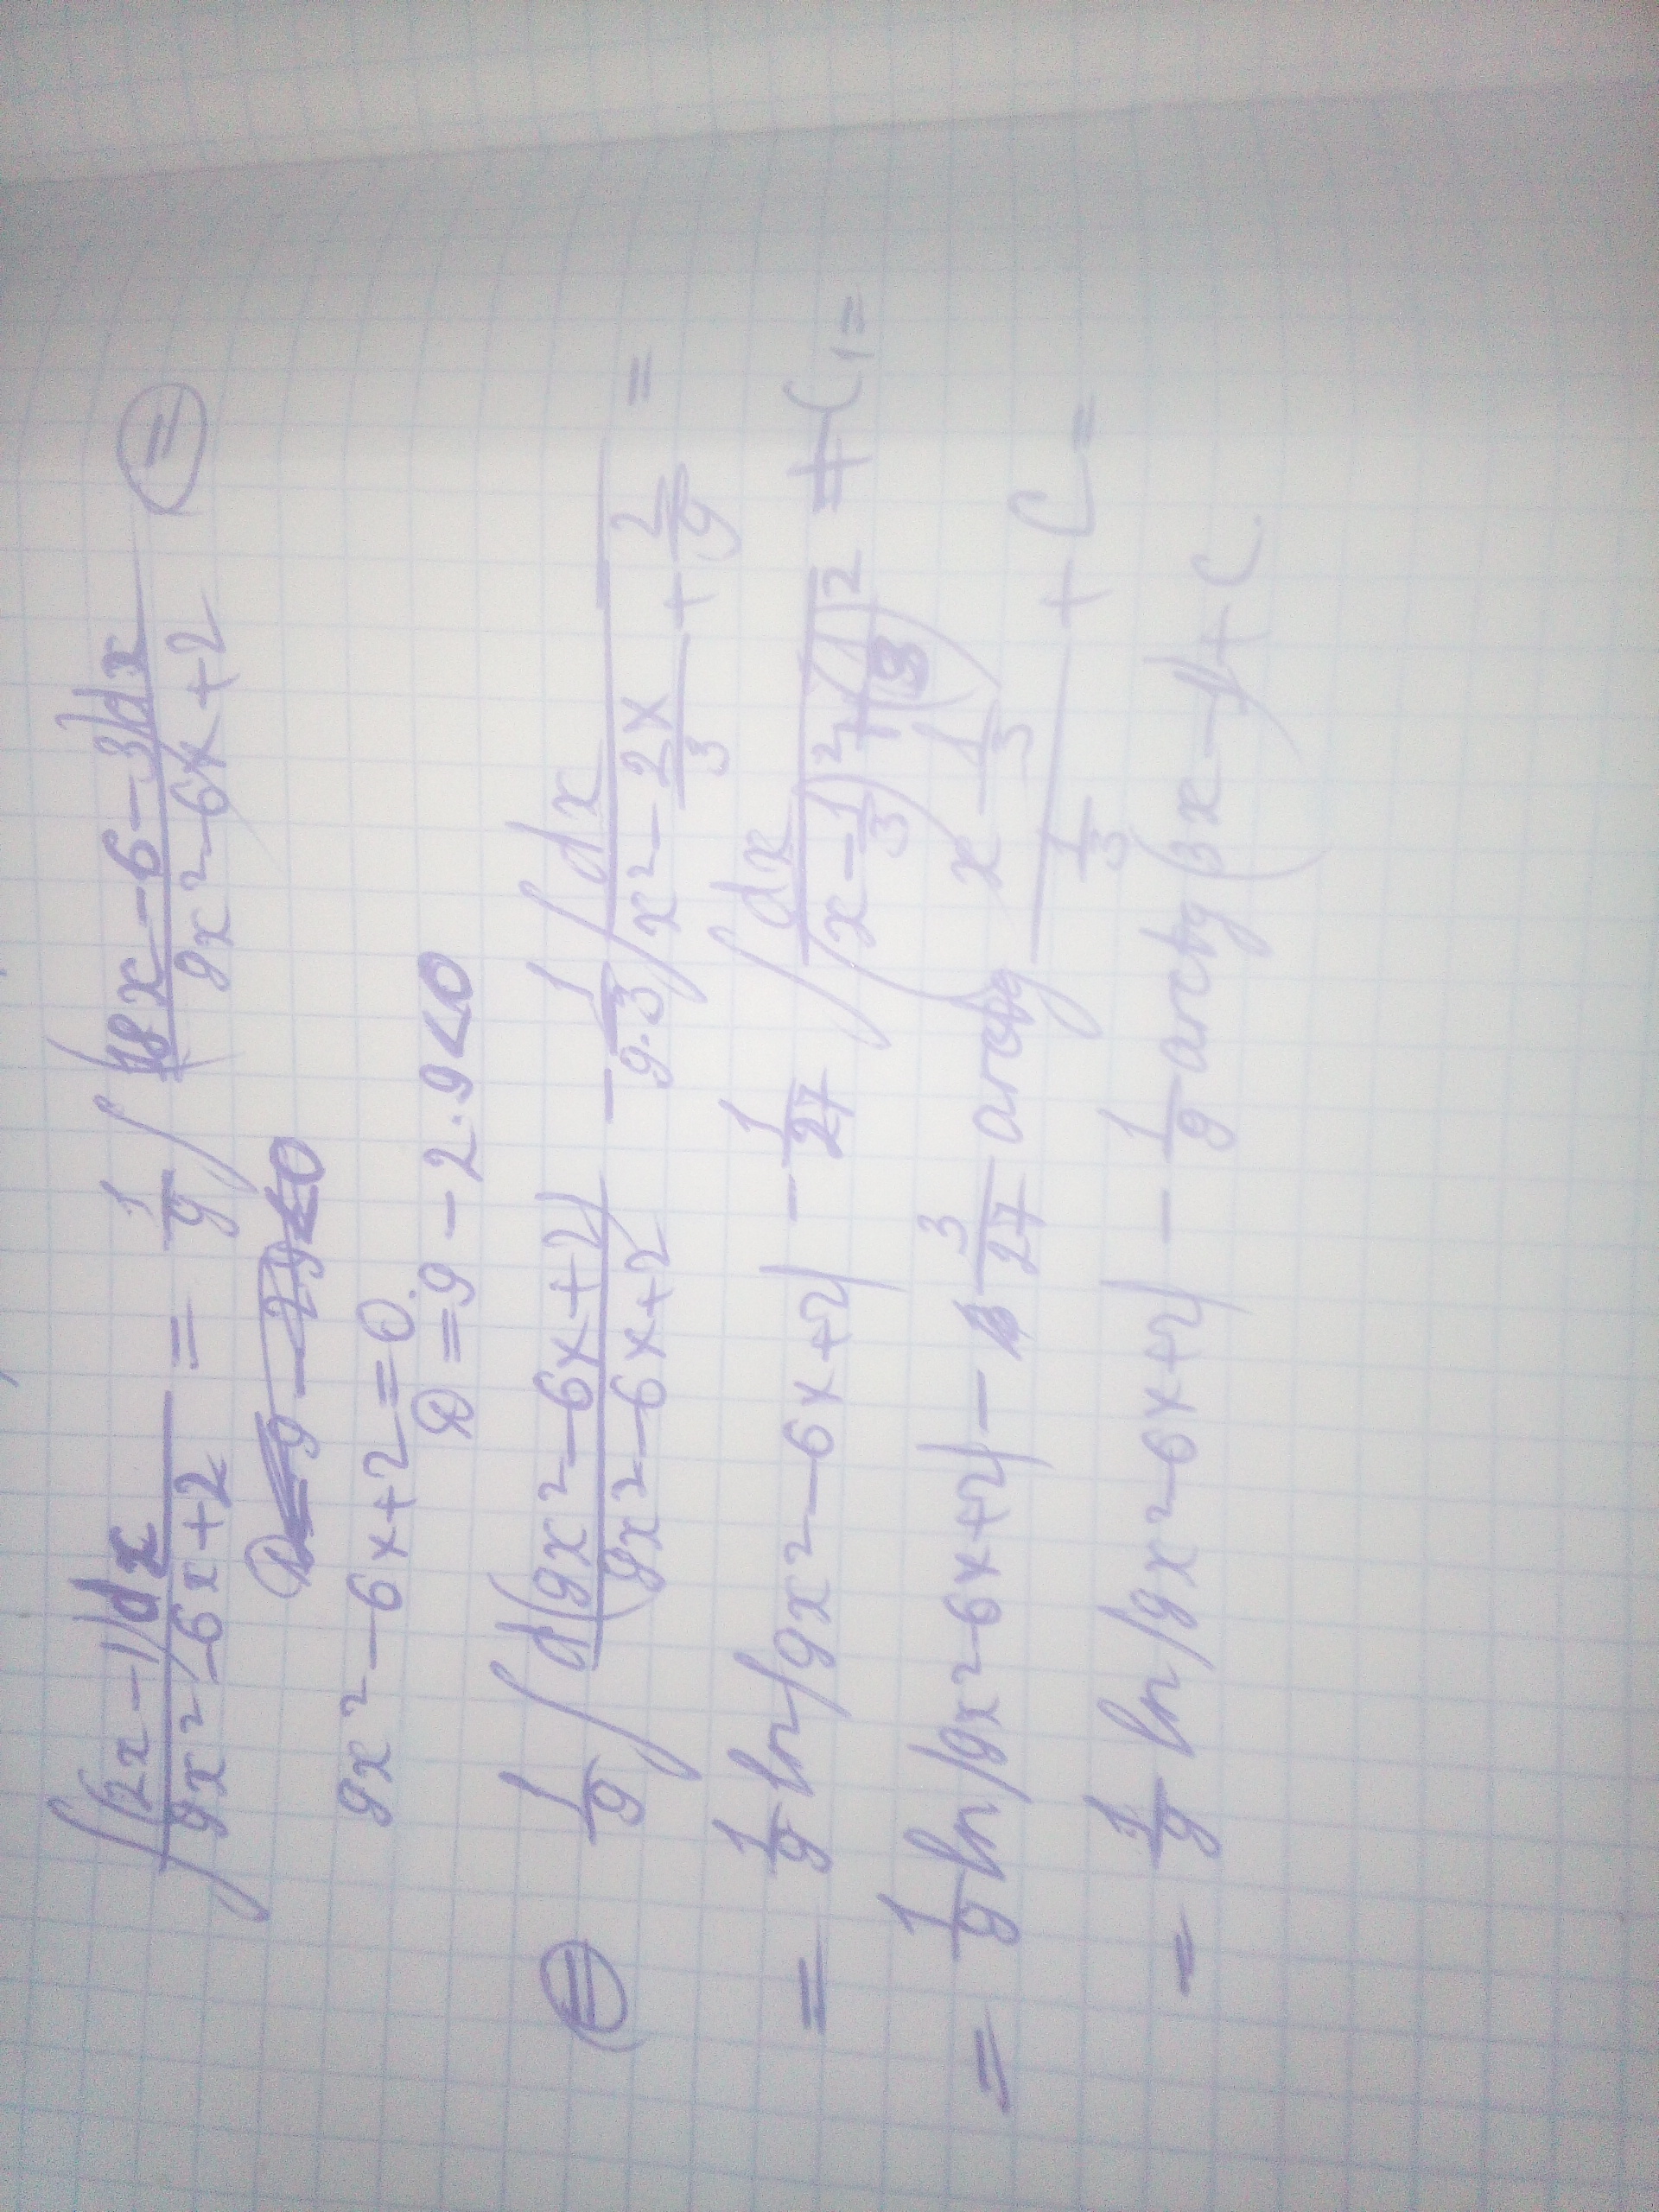 ∫ (2x-1)dx / (9x²-6x+2) = 1/9 ∫ (18x-6-3)dx / (9x²-6x+2) =
9x²-6x+2=0.
D=9-2·9<0
= 1/9 ∫ d(9x²-6x+2) / (9x²-6x+2) - 1/(9·3) ∫ dx / (x² - 2x/3 + 2/9) =
= 1/9 ln|9x²-6x+2| - 1/27 ∫ dx / ((x-1/3)²+(1/3)²) + C₁ =
= 1/9 ln|9x²-6x+2| - 3/27 arctg (x-1/3)/(1/3) + C =
= 1/9 ln|9x²-6x+2| - 1/9 arctg(3x-1)+C